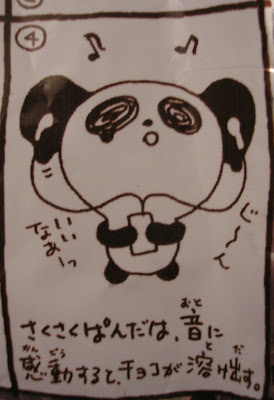 ④
♪ ♪
じ〜ん
いい
なぁーっ
さくさくぱんだは、音に
感動すると、チョコが溶け出す。
おと
かんどう
と だ